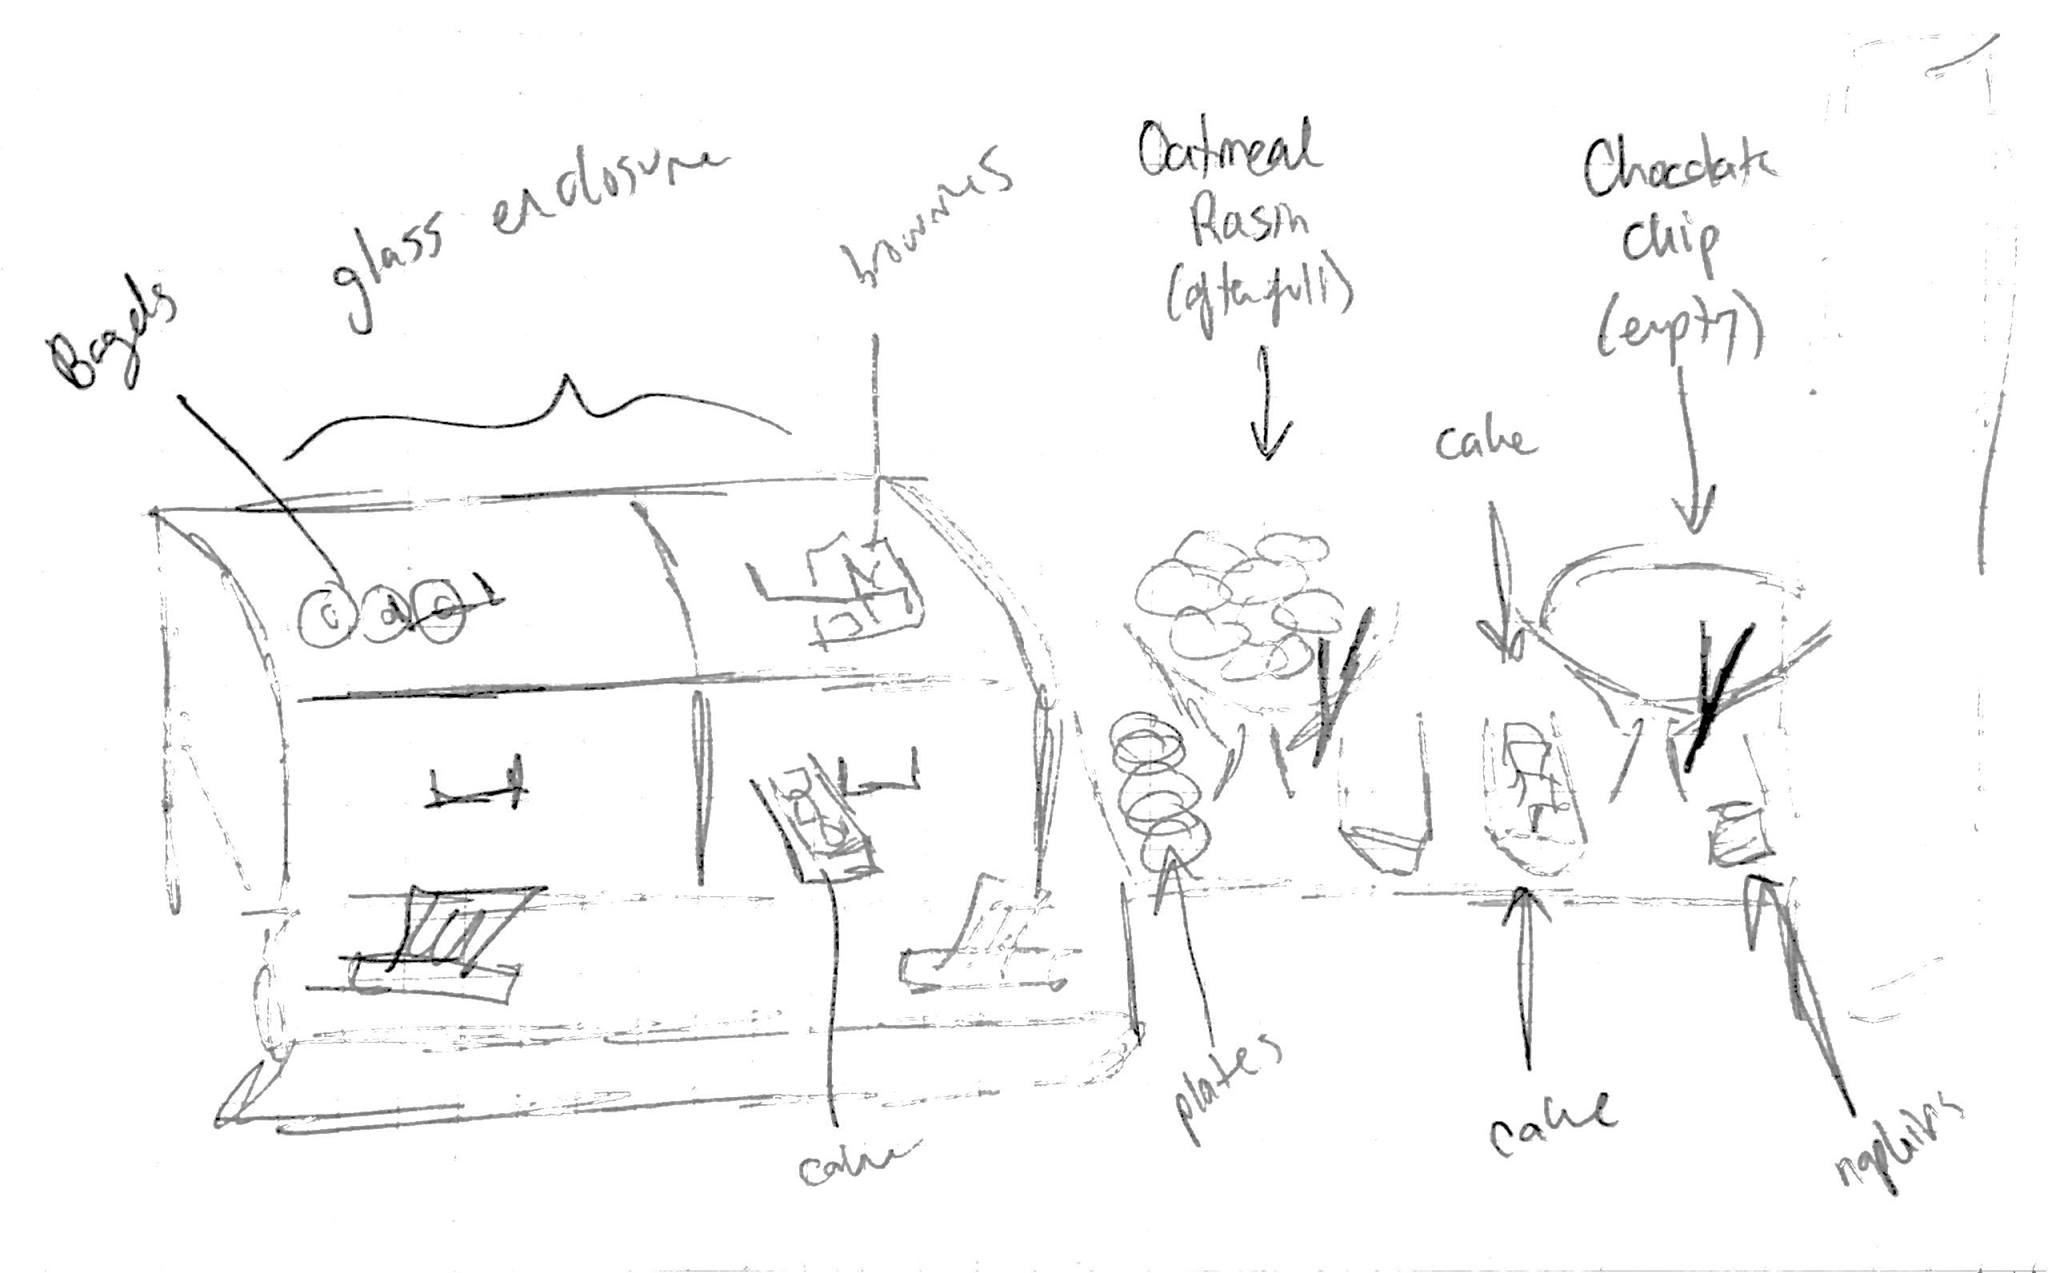 Bagels
glass enclosure
brownies
Oatmeal
Rasin
(often full)
Chocolate
chip
(empty)
cake
cake
plates
cake
napkins